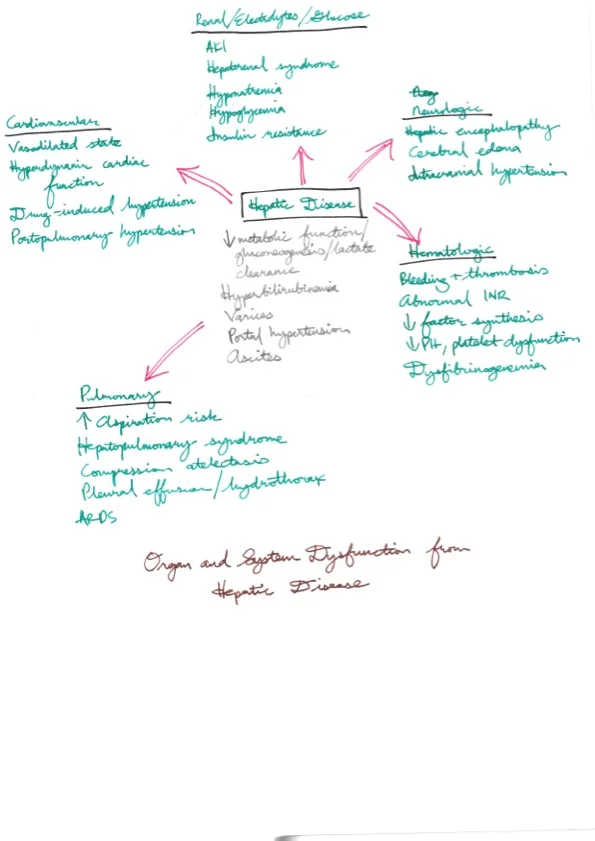 Renal/Electrolytes/Glucose
AKI
Hepatorenal syndrome
Hyponatremia
Hypoglycemia
Insulin resistance
Neurologic
Hepatic encephalopathy
Cerebral edema
Intracranial hypertension
Cardiovascular
Vasodilated state
Hyperdynamic cardiac
function
Drug-induced hypertension
Portopulmonary hypertension
Hepatic Disease
↓ metabolic function/
gluconeogenesis/lactate
clearance
Hyperbilirubinemia
Varices
Portal hypertension
Ascites
Hematologic
Bleeding + thrombosis
Abnormal INR
↓ factor synthesis
↓ Plt, platelet dysfunction
Dysfibrinogenemia
Pulmonary
↑ Aspiration risk
Hepatopulmonary syndrome
Compression atelectasis
Pleural effusion/hydrothorax
ARDS
Organ and System Dysfunction from
Hepatic Disease